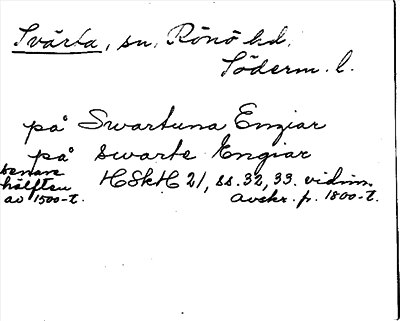 Svärta, sn, Rönö hd,
Söderm. l.
på Swartuna Engiar
på swarte Engiar
senare
hälften
av 1500-t.
HSkH 21, ss. 32, 33. vidim.
avskr. fr. 1800-t.